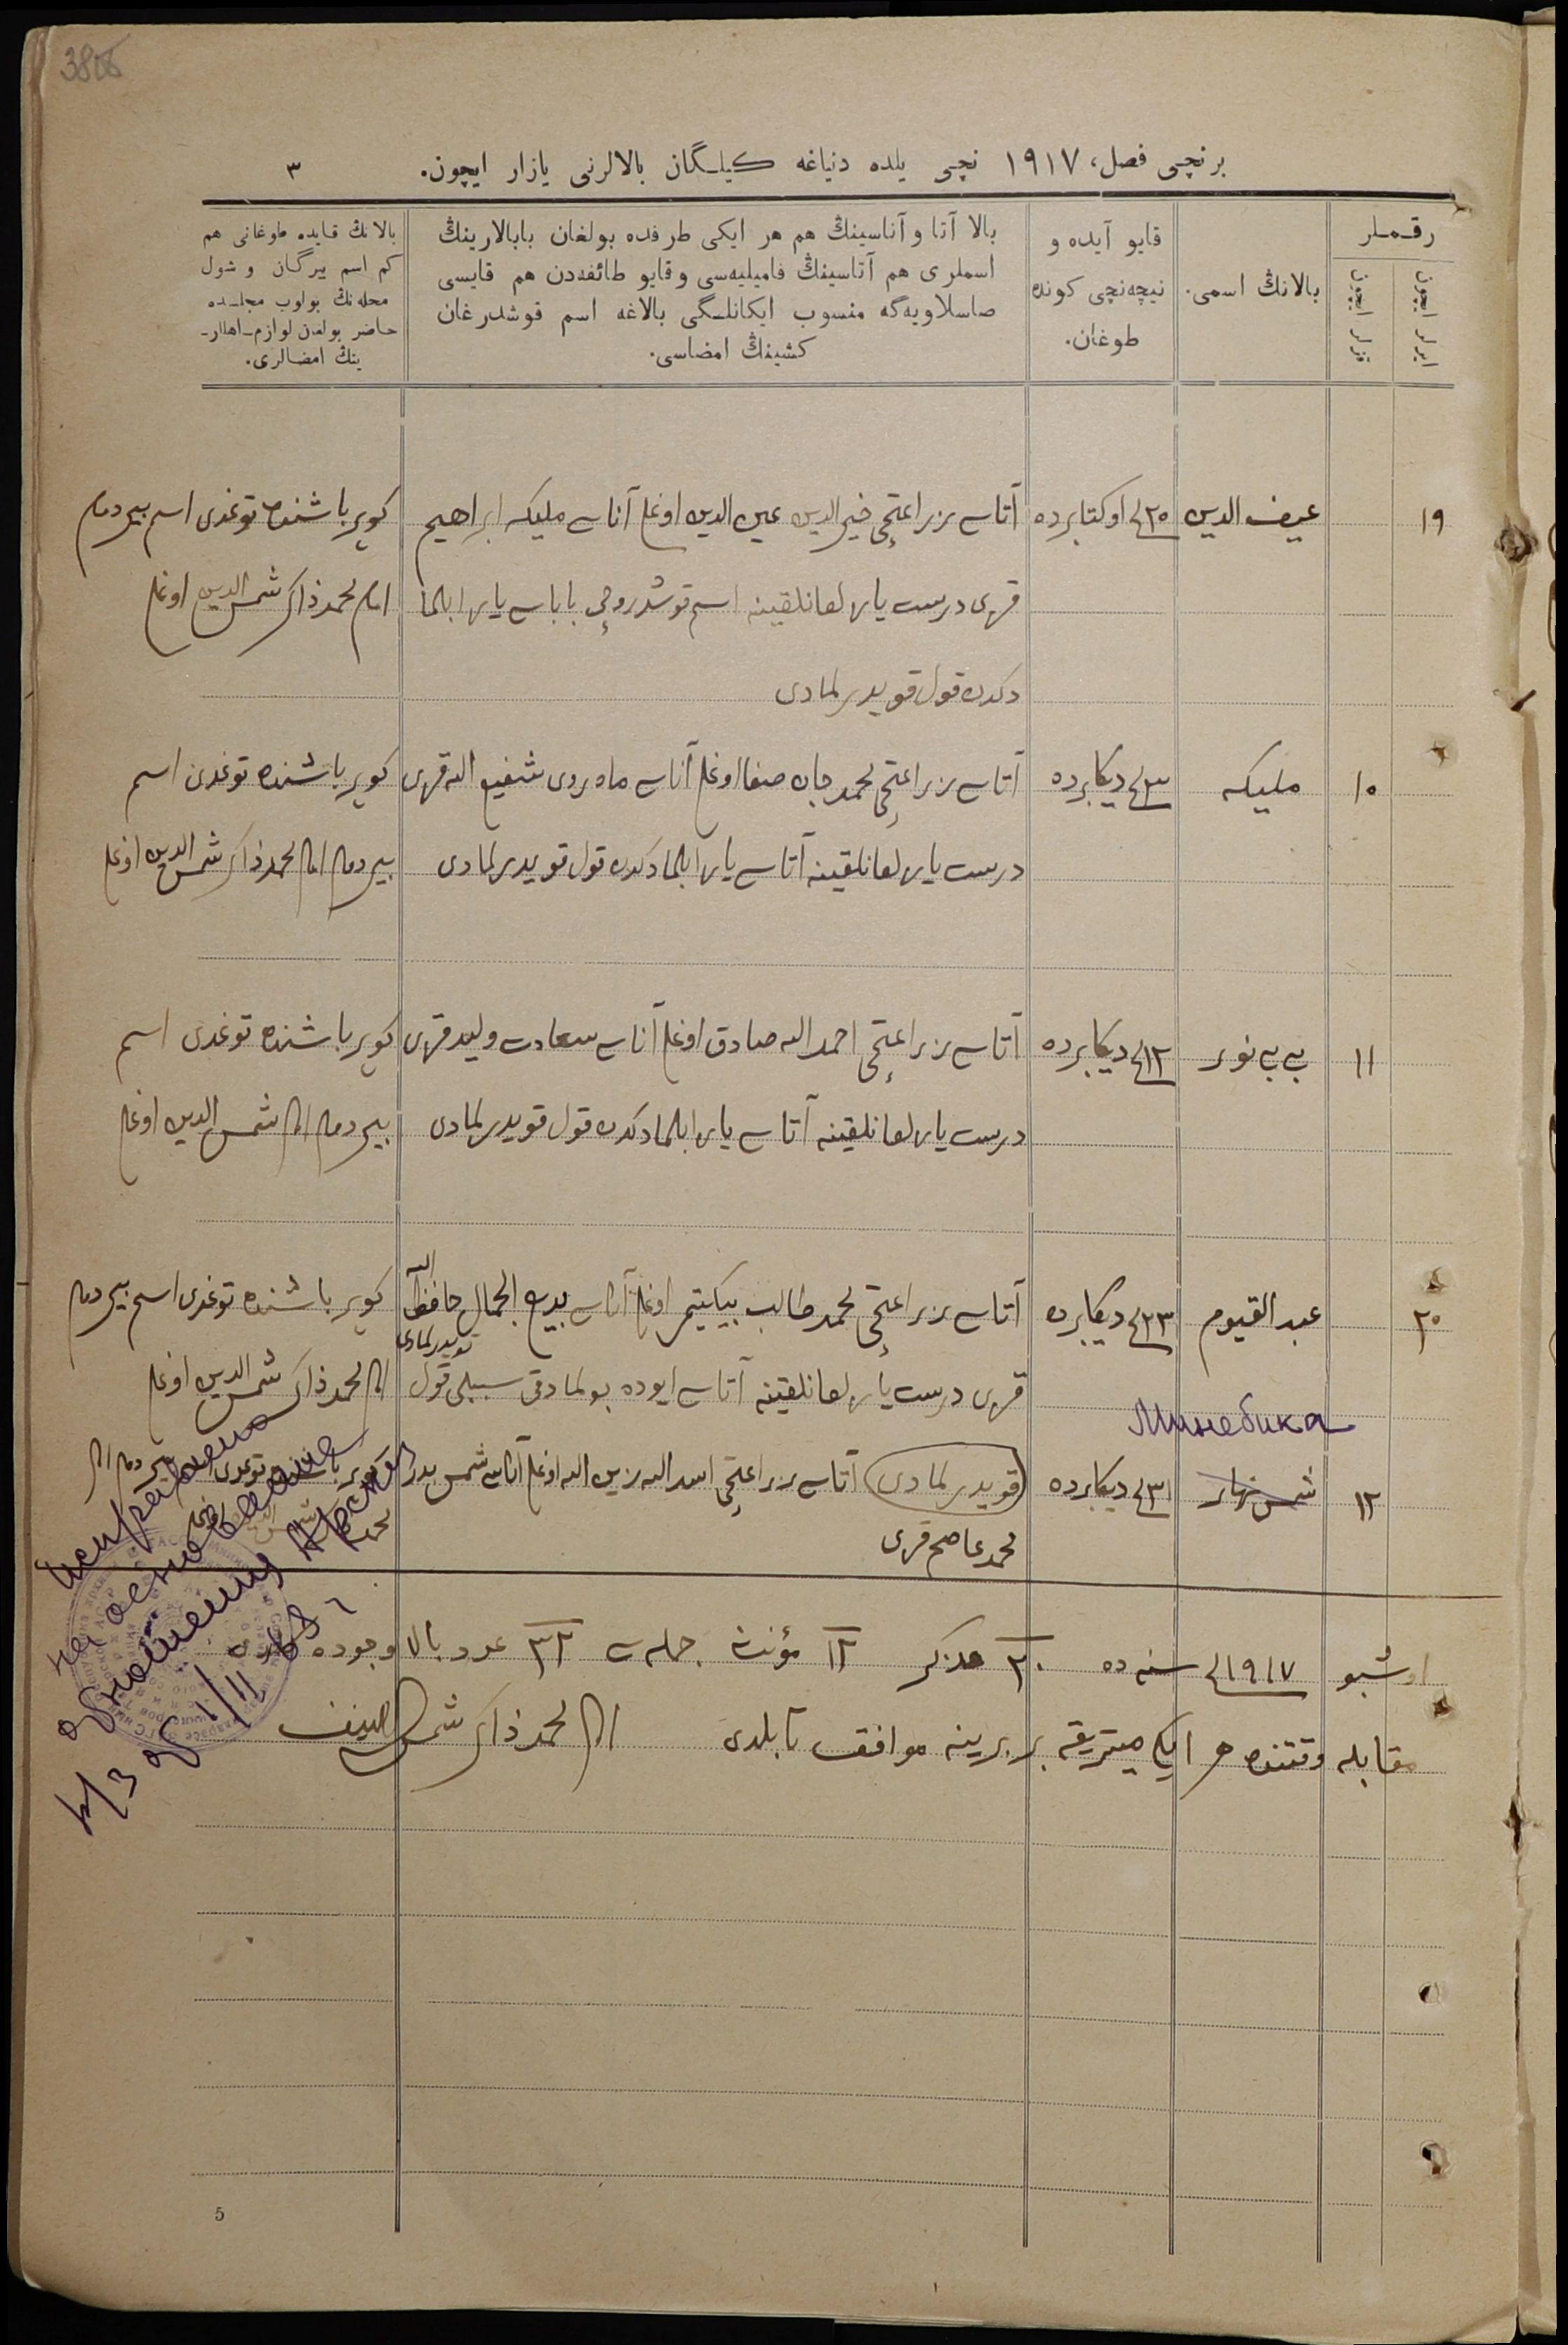 برنچی فصل، ١٩١٧ نچی یلده دنیاغه کیلـگان بالالرنی یازار ایچون.
٣
رقـمـلر
ایرلر ایچون
قزلر ایچون
بالانڭ اسمی.
قایو آیده و
نیچه‌نچی کونده
طوغان.
بالا آتا و آناسینڭ هم هر ایکی طرفده بولغان بابالارینڭ
اسملری هم آتاسینڭ فامیلیه‌سی و قایو طائفه‌دن هم قایسی
صاسلاویه‌گه منسوب ایکانلـگی بالاغه اسم قوشدرغان
کشینڭ امضاسی.
بالانڭ قایده طوغانی هم
کم اسم بیرگان و شول
محله‌نڭ بولوب مجلـسده
حاضر بولغان لوازم-اهللر-
ینڭ امضالری.
١٩
عیف الدین
٢٠ اوکتابرده
آتاسی زراعتچی خیر الدین عین الدین اوغلی آناسی ملیکه ابراهیم
قزی درست یازلغانلقینه اسم قوشدروچی باباسی یازا بلما
دکدن قول قویدرلمادی
کوپر باشنده توغدی اسم بیردم
امام محمد ذاکر شمس الدین اوغلی
١٠
ملیکه
٣ دیکابرده
آتاسی زراعتچی محمد جان صفا اوغلی آناسی ماه‌روی شفیع الله قزی
درست یازلغانلقینه آتاسی یازا بلمادکدن قول قویدرلمادی
کوپر باشنده توغدی اسم
بیردم امام محمد ذاکر شمس الدین اوغلی
١١
بی بی نور
١٢ دیکابرده
آتاسی زراعتچی احمد الله صادق اوغلی آناسی سعادت ولید قزی
درست یازلغانلقینه آتاسی یازا بلمادکدن قول قویدرلمادی
کوپر باشنده توغدی اسم
بیردم امام شمس الدین اوغلی
٢٠
عبد القیوم
٢٣ دیکابرده
آتاسی زراعتچی محمد طالب بیکتیمر اوغلی آناسی بدیع الجمال حافظ الله
قزی درست یازلغانلقینه آتاسی ایوده بولمادقی سببلی قول قویدرلمادی
کوپر باشنده توغدی اسم بیردم
امام محمد ذاکر شمس الدین اوغلی
Минебика
١٢
شمس نهار
٣١ دیکابرده
قویدرلمادی آتاسی زراعتچی اسد الله زین الله اوغلی آناسی شمس بدر
محمد عاصم قزی
کوپر باشنده توغدی اسم بیردم امام
Исправлено
на основание
отношения
н/з от 1/II
اوشبو ١٩١٧ سنه‌ده ٢٠ مذکر ١٢ مؤنث جمله‌سی ٣٢ عدد بالا وجوده کلدی
مقابله وقتنده هر ایکی میتریقه بر برینه موافق تابلدی امام محمد ذاکر شمس الدینف
5